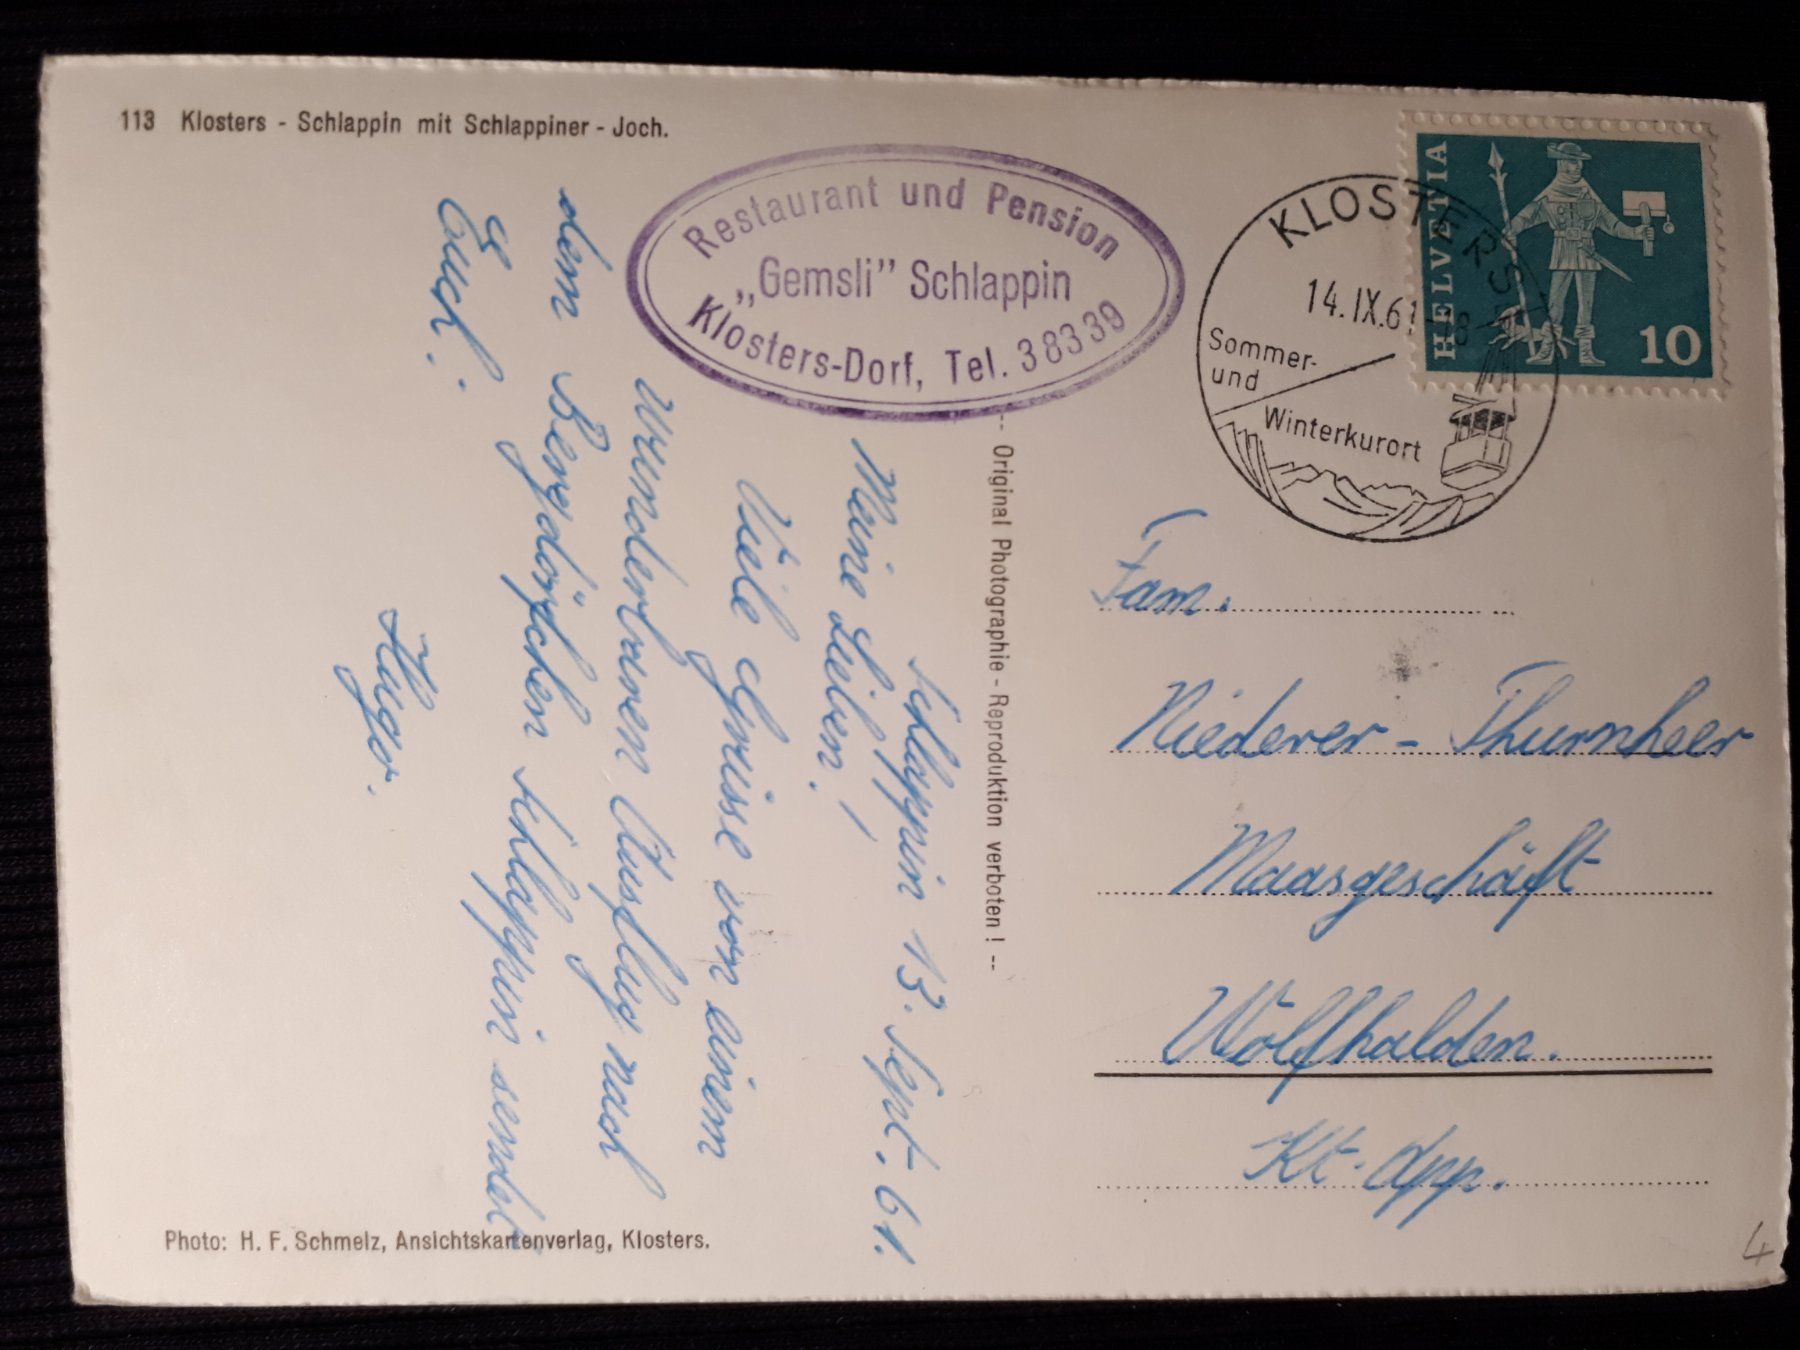 113 Klosters - Schlappin mit Schlappiner - Joch.
Restaurant und Pension
„Gemsli” Schlappin
Klosters-Dorf, Tel. 38339
KLOSTERS
14.IX.61-18
Sommer-
und
Winterkurort
HELVETIA
10
Schlappin 13. Sept. 61.
Meine Lieben!
Viele Grüsse von einem
wunderbaren Ausflug nach
dem Bergdörfchen Schlappin sendet
Euch:
Hugo.
-- Original Photographie - Reproduktion verboten ! --
Fam.
Niederer - Thurnheer
Maasgeschäft
Wolfhalden.
Kt. App.
Photo: H. F. Schmelz, Ansichtskartenverlag, Klosters.
4